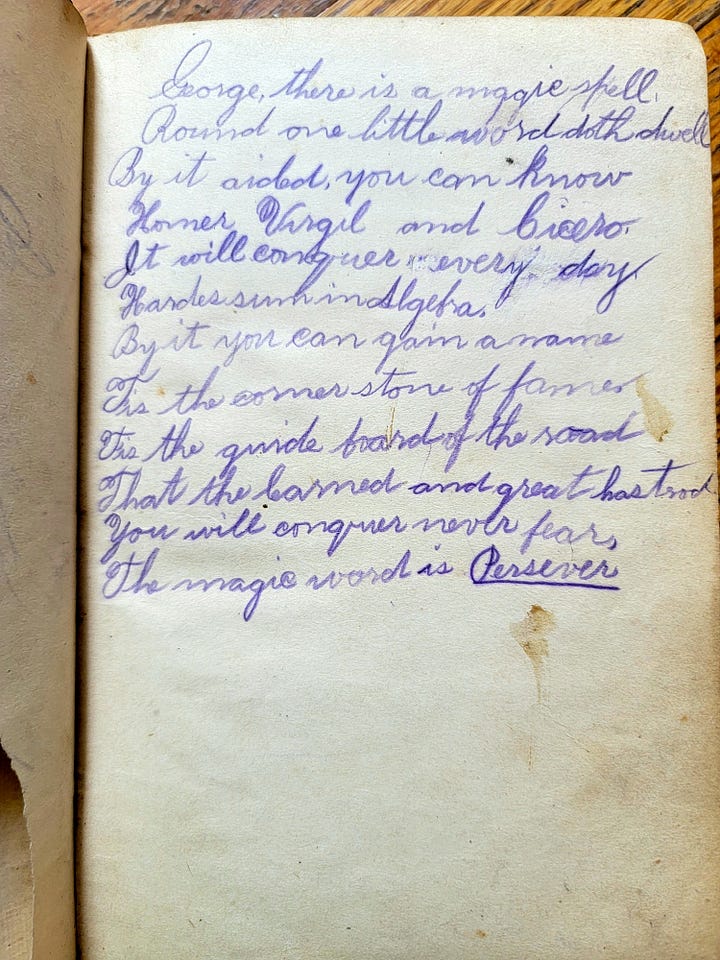 George, there is a magic spell,
Round one little word doth dwell
By it aided, you can know
Homer, Virgil and Cicero.
It will conquer every day
Hardes sum in Algebra,
By it you can gain a name
Tis the corner stone of fame
Tis the guide board of the road
That the learned and great has trod
You will conquer never fear,
The magic word is Persever